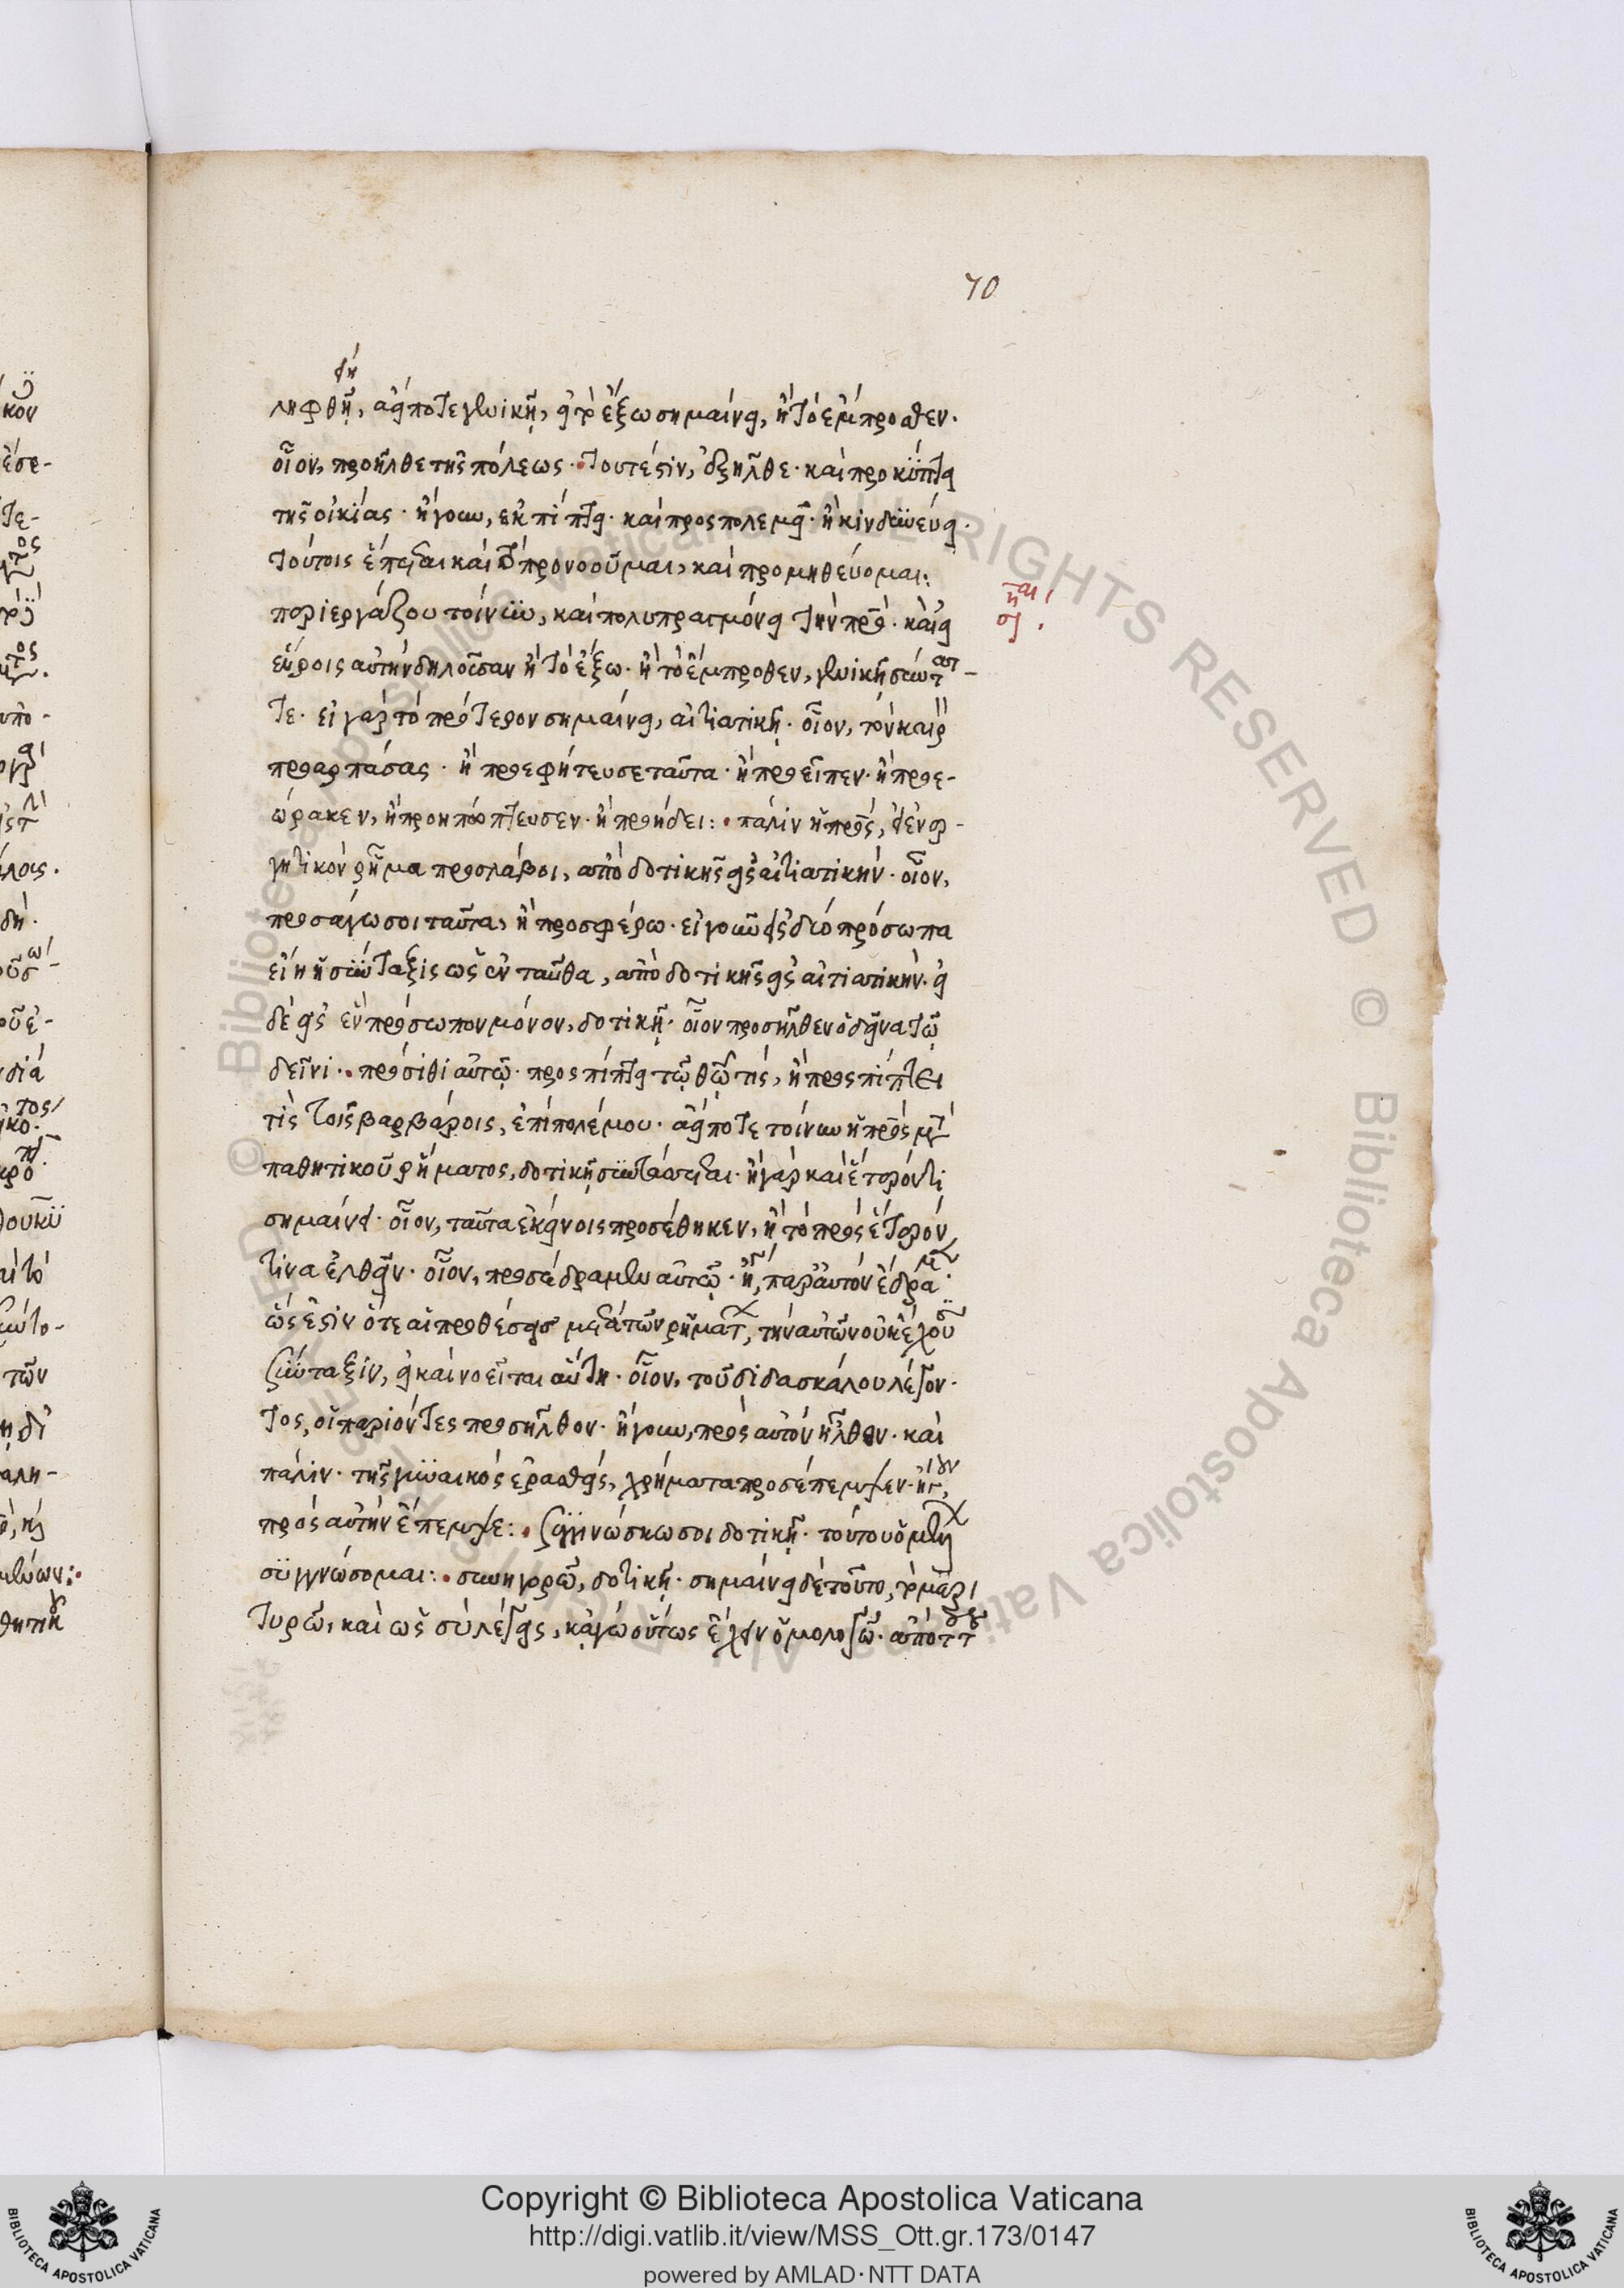 70
ληφθῇ, ἀεί ποτε γενικῇ, εἰ τὸ ἔξω σημαίνει, ἢ τὸ ἔμπροσθεν·
οἷον, προῆλθε τῆς πόλεως· τουτέστιν, ἐξῆλθε· καὶ προκύπτει
τῆς οἰκίας· ἤγουν, ἐκπίπτει· καὶ προπολεμεῖ· ἢ κινδυνεύει·
τούτοις ἕπεται καὶ τὸ προνοοῦμαι, καὶ προμηθεύομαι:
περιεργάζου τοίνυν, καὶ πολυπραγμόνει τὴν πρό· καὶ εἰ
εὕροις αὐτὴν δηλοῦσαν ἢ τὸ ἔξω· ἢ τὸ ἔμπροσθεν, γενικῇ σύνταττε
τε· εἰ γὰρ τὸ πρότερον σημαίνει, αἰτιατικῇ· οἷον, τὸν καιρὸν
προαρπάσας· ἢ προεφήτευσε ταῦτα· ἢ προεῖπεν· ἢ προε-
ώρακεν, ἢ προηπόπτευσεν· ἢ προῄδει: πάλιν ἡ πρός, εἰ ἐνερ-
γητικὸν ῥῆμα προσλάβοι, ἀπὸ δοτικῆς εἰς αἰτιατικήν· οἷον,
προσάγω σοι ταῦτα, ἢ προσφέρω· εἰ γοῦν εἰς δύο πρόσωπα
εἴη ἡ σύνταξις ὡς ἐνταῦθα, ἀπὸ δοτικῆς εἰς αἰτιατικήν· εἰ
δὲ εἰς ἓν πρόσωπον μόνον, δοτικῇ· οἷον προσῆλθεν ὁ δεῖνα τῷ
δεῖνι· πρόσιθι αὐτῷ· προσπίπτει τῷ θεῷ τίς, ἢ προσπίπτει
τὶς τοῖς βαρβάροις, ἐπὶ πολέμου· ἀεί ποτε τοίνυν ἡ πρός μετὰ
παθητικοῦ ῥήματος, δοτικῇ συντάσσεται· ἢ γὰρ καὶ ἕτερόν τι
σημαίνει· οἷον, ταῦτα ἐκείνοις προσέθηκεν, ἢ τὸ πρὸς ἕτερόν
τινα ἐλθεῖν· οἷον, προσέδραμεν αὐτῷ· ἤ, παρ' αὐτὸν ἔδραμεν·
ὡς ἔστιν ὅτε αἱ προθέσεις μετὰ τῶν ῥημάτων, τὴν αὐτῶν οὐκ ἔχουσι
σύνταξιν, εἰ καὶ νοεῖται αὕτη· οἷον, τοῦ διδασκάλου λέγον-
τος, οἱ παριόντες προσῆλθον· ἤγουν, πρὸς αὐτὸν ἦλθον· καὶ
πάλιν· τῆς γυναικὸς ἐρασθείς, χρήματα προσέπεμψεν· ἤγουν,
πρὸς αὐτὴν ἔπεμψε: συγγινώσκω σοι δοτικῇ· τούτου ὁ μέλλων
συγγνώσομαι: συνηγορῶ, δοτικῇ· σημαίνει δὲ τοῦτο, τὸ μαρ-
τυρῶ, καὶ ὡς σὺ λέγεις, κἀγὼ οὕτως ἔχειν ὁμολογῶ· ἀπὸ τούτου